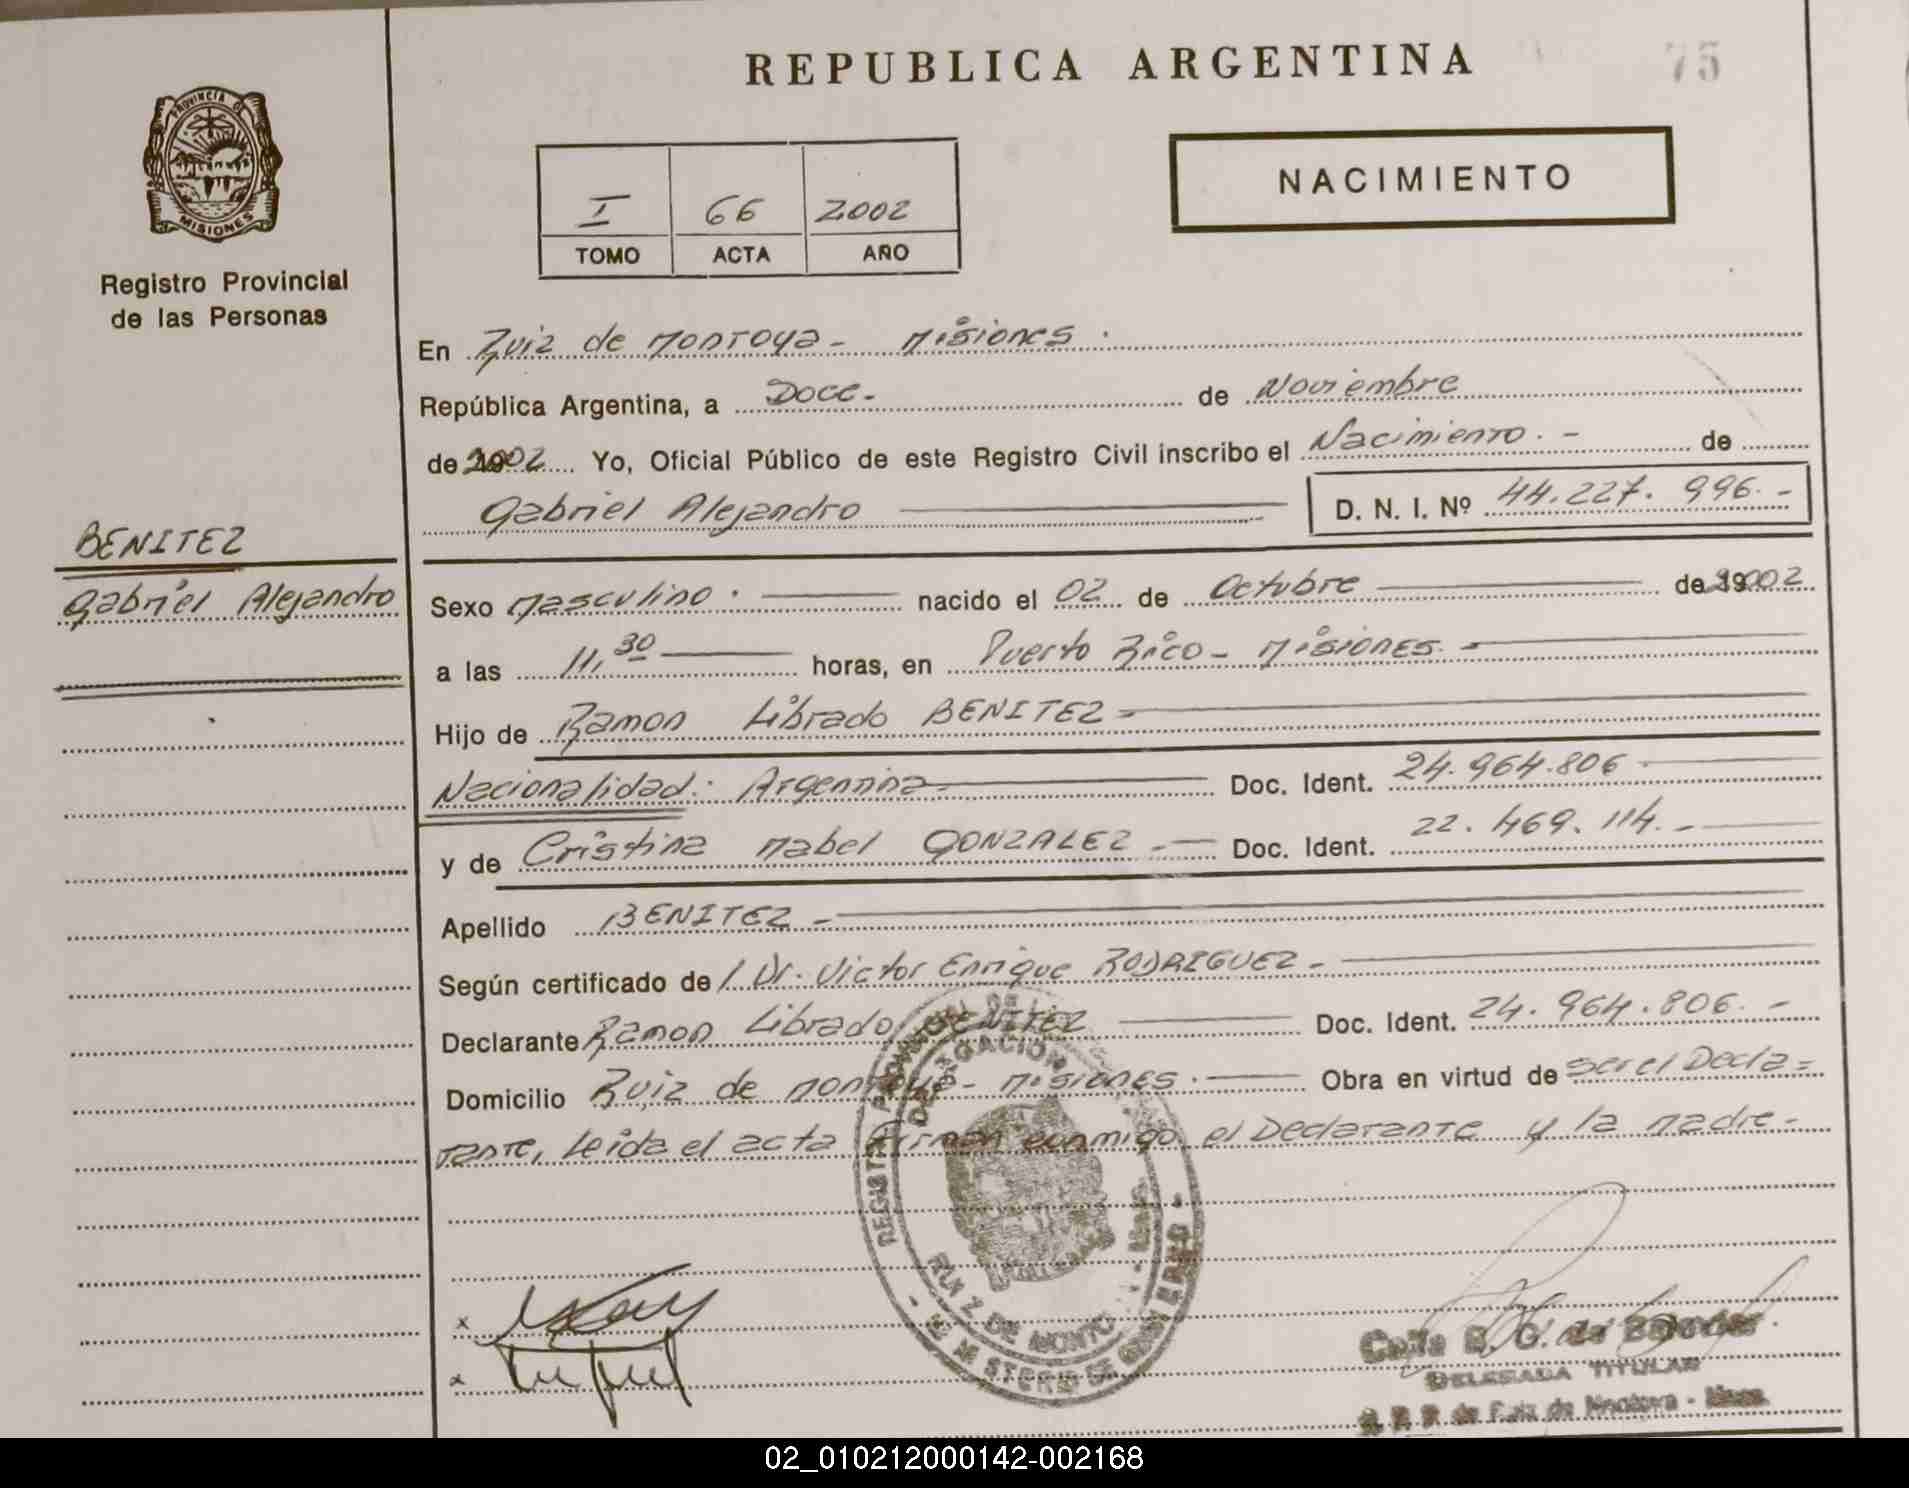 REPUBLICA ARGENTINA
75
PROVINCIA DE
MISIONES
Registro Provincial
de las Personas
I 66 2002
TOMO ACTA AÑO
NACIMIENTO
En Ruiz de Montoya - Misiones.
República Argentina, a Doce - de Noviembre
de 2002 Yo, Oficial Público de este Registro Civil inscribo el Nacimiento. - de
Gabriel Alejandro D. N. I. Nº 44.227.996.-
BENITEZ
Gabriel Alejandro
Sexo Masculino. nacido el 02 de Octubre de 2002
a las 11,30 horas, en Puerto Rico - Misiones.
Hijo de Ramon Librado BENITEZ
Nacionalidad: Argentina Doc. Ident. 24.964.806
y de Cristina Mabel GONZALEZ - Doc. Ident. 22.469.114.-
Apellido BENITEZ -
Según certificado de / Dr. Victor Enrique RODRIGUEZ -
Declarante Ramon Librado BENITEZ Doc. Ident. 24.964.806. -
Domicilio Ruiz de Montoya - Misiones. Obra en virtud de ser el Decla=
rante, Leida el acta firman conmigo el Declarante y la Madre -
DELEGACION
RUIZ DE MONTOYA
x
x
DELEGADA TITULAR
de Ruiz de Montoya - Mnes.
02_010212000142-002168